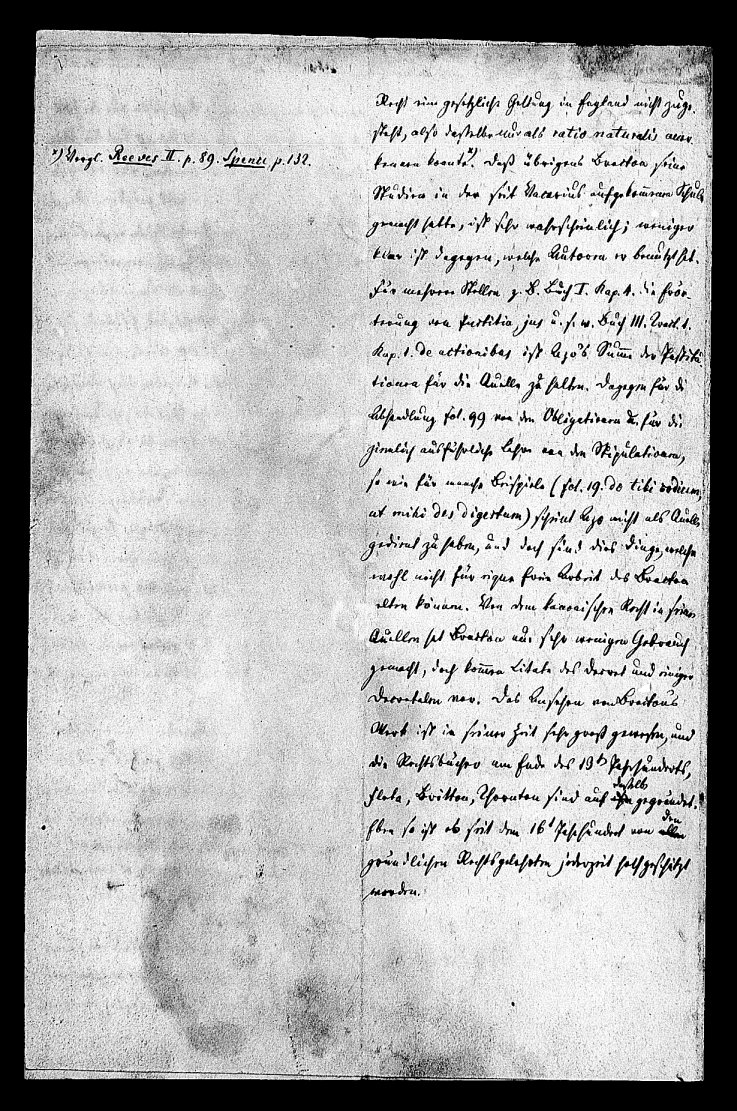 x) Vergl. Reeves II. p. 89. Spence p. 132.
Recht eine gesetzliche Geltung in England nicht zuge-
steht, also dasselbe nur als ratio naturalis aner-
kennen konnte x). Daß übrigens Bracton seine
Studien in der seit Vacarius aufgekommenen Schule
gemacht hatte, ist sehr wahrscheinlich; weniger
klar ist dagegen, welche Autoren er benutzt hat.
Für mehrere Stellen z. B. Buch I. Kap. 4. die Erör-
terung von Justitia, jus u. s. w. Buch III. Tract. 1.
Kap. 1. de actionibus ist Azo's Summe der Institu-
tionen für die Quelle zu halten. Dagegen für die
Abhandlung fol. 99 von den Obligationen u. für die
ziemlich ausführliche Lehre von den Stipulationen,
so wie für manche Beispiele (fol. 19. do tibi codicem,
ut mihi des digestum) scheint Azo nicht als Quelle
gedient zu haben, und doch sind dies Dinge, welche
wohl nicht für eigne freie Arbeit des Bracton
gelten können. Von dem kanonischen Recht in seinen
Quellen hat Bracton nur sehr wenigen Gebrauch
gemacht, doch kommen Citate des Decret und einiger
Decretalen vor. Das Ansehen von Bractons
Werk ist in seiner Zeit sehr groß gewesen, und
die Rechtsbücher am Ende des 13t Jahrhunderts,
Fleta, Britton, Thornton sind auf dasselbe gegründet.
Eben so ist es seit dem 16t Jahrhundert von den
gründlichen Rechtsgelehrten jederzeit hoch geschätzt
worden.